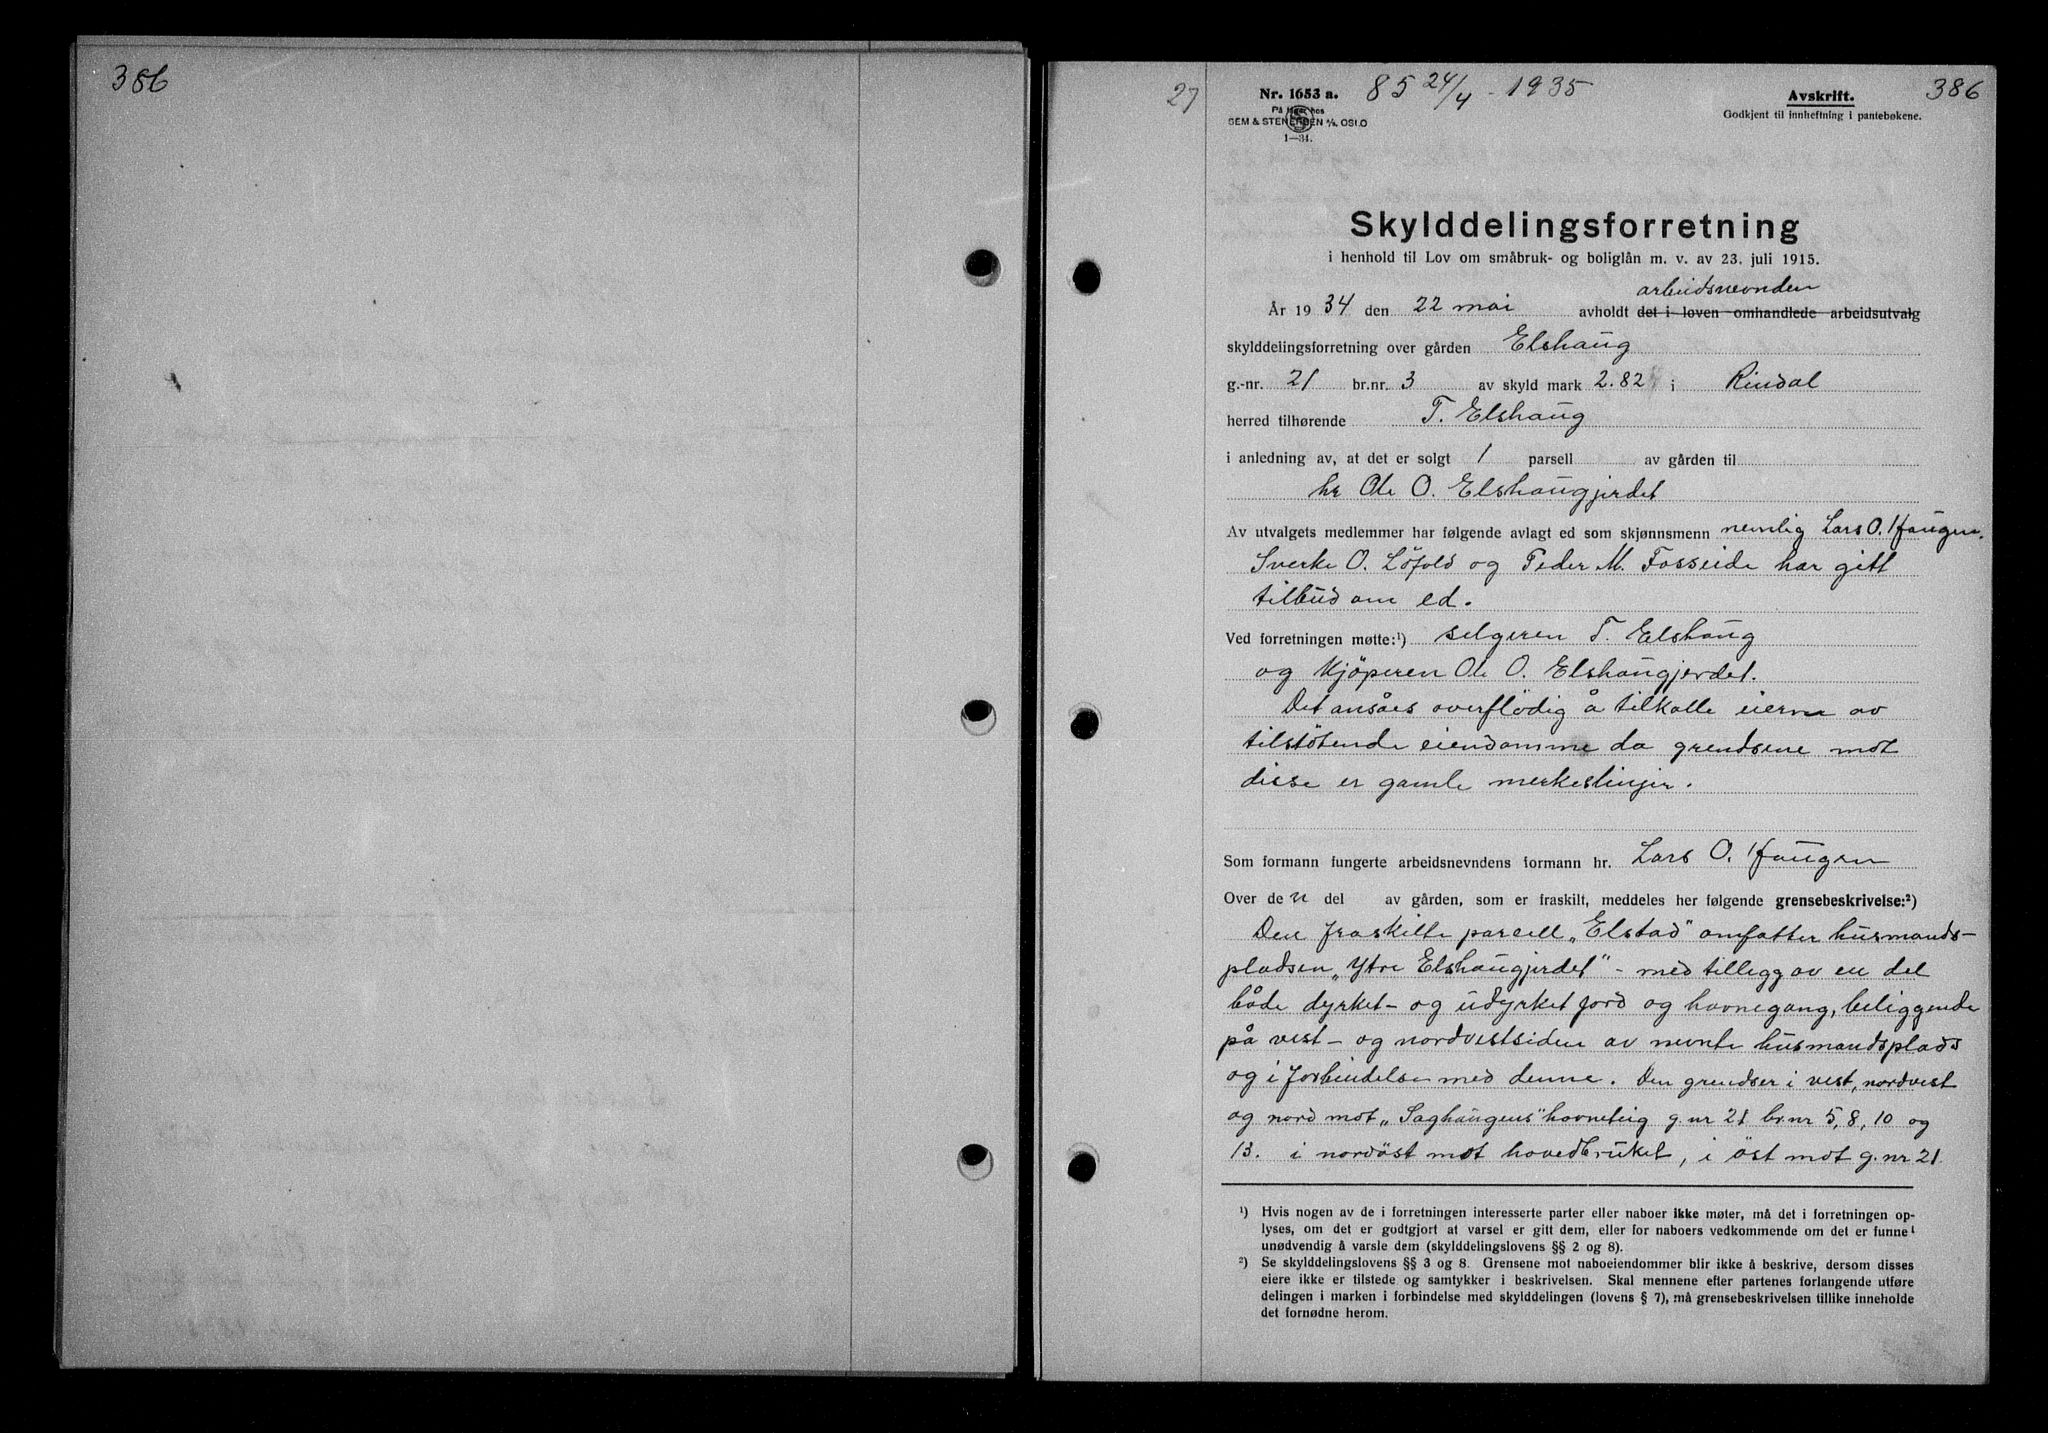 386
27
Nr. 1653 a.
På lager hos
SEM & STENERSEN A/S OSLO
1—34.
85 24/4 - 1935
Avskrift.
Godkjent til innheftning i pantebøkene.
386
Skylddelingsforretning
i henhold til Lov om småbruk- og boliglån m. v. av 23. juli 1915.
arbeidsnevnden
År 1934 den 22 mai avholdt det i loven omhandlede arbeidsutvalg
skylddelingsforretning over gården Elshaug
g.-nr. 21 br.nr. 3 av skyld mark 2.82 i Rindal
herred tilhørende T. Elshaug
i anledning av, at det er solgt 1 parsell av gården til
hr Ole O. Elshaugjerdet
Av utvalgets medlemmer har følgende avlagt ed som skjønnsmenn nemlig Lars O. Haugen.
Sverke O. Löfold og Peder M. Fosseide har gitt
tilbud om ed.
Ved forretningen møtte:¹) selgeren T. Elshaug
og kjöperen Ole O. Elshaugjerdet.
Det ansåes overflödig å tilkalle eierne av
tilstötende eiendomme da grendsene mot
disse er gamle merkeslinjer.
Som formann fungerte arbeidsnevndens formann hr. Lars O. Haugen
Over den del av gården, som er fraskilt, meddeles her følgende grensebeskrivelse:²)
Den fraskilte parsell „Elstad" omfatter husmands-
pladsen „Ytre Elshaugjerdet" - med tillegg av en del
både dyrket- og udyrket jord og havnegang, beliggende
på vest- og nordvestsiden av nevnte husmandsplads
og i forbindelse med denne. Den grendser i vest, nordvest
og nord mot „Saghaugens" havneteig g.nr 21 br.nr 5, 8, 10 og
13. i nordöst mot hovedbruket, i öst mot g.nr 21
¹) Hvis nogen av de i forretningen interesserte parter eller naboer ikke møter, må det i forretningen op-
lyses, om det er godtgjort at varsel er gitt dem, eller for naboers vedkommende om det er funnet
unødvendig å varsle dem (skylddelingslovens §§ 2 og 8).
²) Se skylddelingslovens §§ 3 og 8. Grensene mot naboeiendommer blir ikke å beskrive, dersom disses
eiere ikke er tilstede og samtykker i beskrivelsen. Skal mennene efter partenes forlangende utføre
delingen i marken i forbindelse med skylddelingen (lovens § 7), må grensebeskrivelsen tillike inneholde
det fornødne herom.